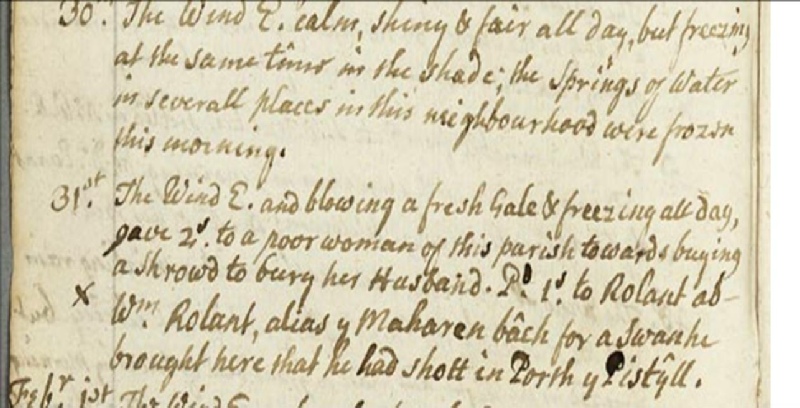 30th. The Wind E. calm, shiny & fair all day, but freezing
at the same time in the shade; the springs of Water
in severall places in this neighbourhood were frozen
this morning.
31st. The Wind E. and blowing a fresh Gale & freezing all day,
gave 2s. to a poor woman of this parish towards buying
a Shrowd to bury her Husband. Pd. 1s. to Rolant ab-
x Wm. Rolant, alias y Maharen bâch for a Swan he
brought here that he had shott in Porth y Pistÿll.
Febr. 1st The Wind E.